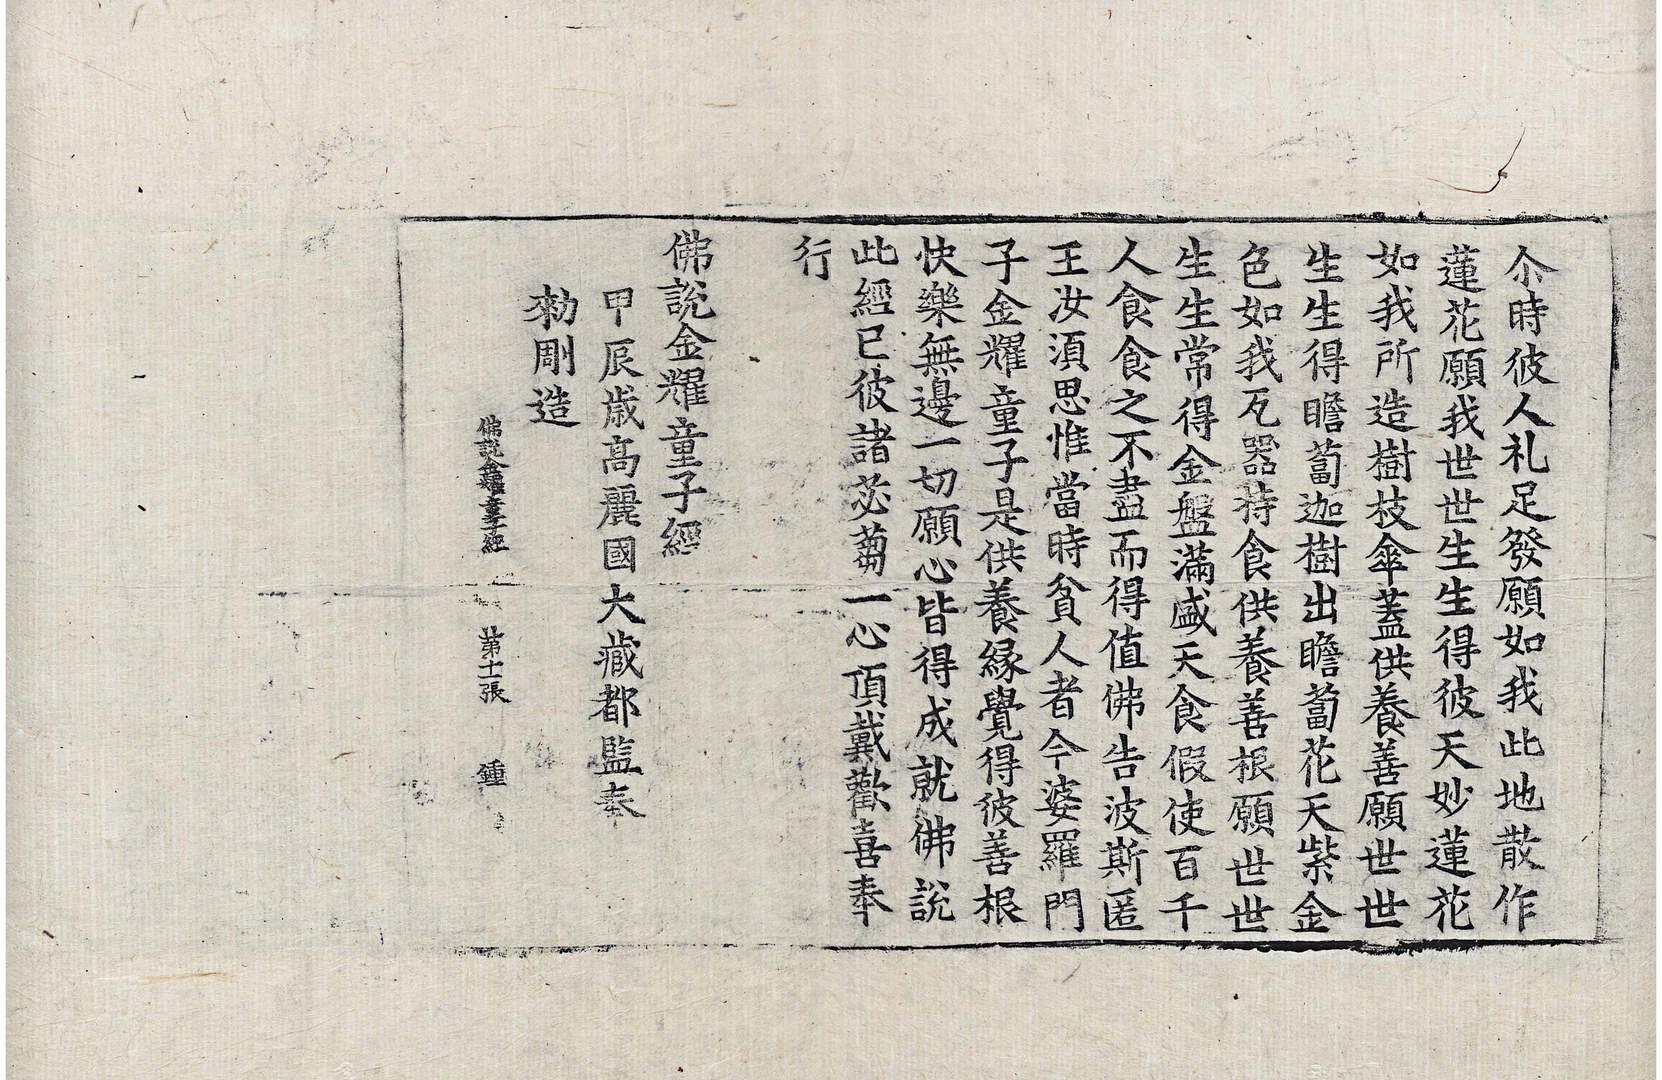 尒時彼人礼足發願如我此地散作
蓮花願我世世生生得彼天妙蓮花
如我所造樹枝傘蓋供養善願世世
生生得瞻蔔迦樹出瞻蔔花天紫金
色如我瓦器持食供養善根願世世
生生常得金盤滿盛天食假使百千
人食食之不盡而得值佛告波斯匿
王汝湏思惟當時貧人者今婆羅門
子金耀童子是供養緣覺得彼善根
快樂無邊一切願心皆得成就佛說
此經已彼諸苾蒭一心頂戴歡喜奉
行
佛說金耀童子經
甲辰歲高麗國大藏都監奉
勑剛造
佛說金耀童子經 第十一張 鍾